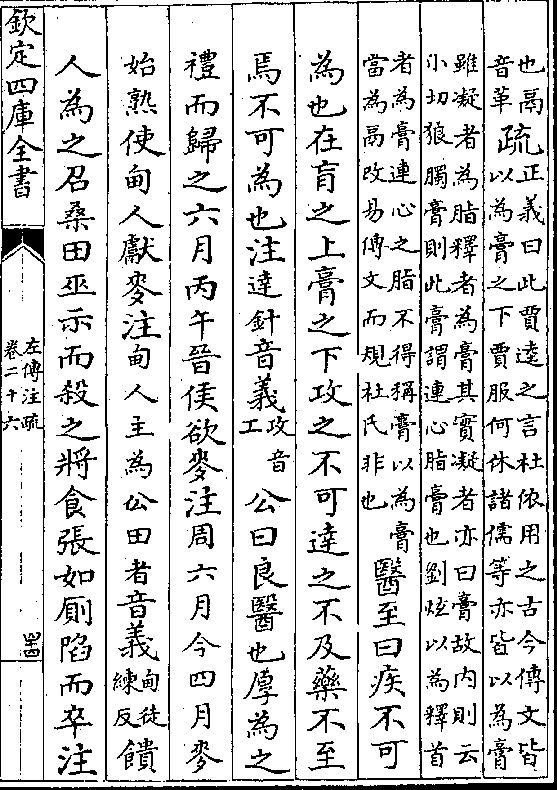 也鬲
音革
疏
正義曰此賈逵之言杜依用之古今傳文皆
以為膏之下賈服何休諸儒等亦皆以為膏
雖凝者為脂釋者為膏其實凝者亦曰膏故内則云
小切狼臅膏則此膏謂連心脂膏也劉炫以為釋首
者為膏連心之脂不得稱膏以為膏
當為鬲改易傳文而規杜氏非也
醫至曰疾不可
為也在肓之上膏之下攻之不可達之不及藥不至
焉不可為也注達針音義
攻音
工
公曰良醫也厚為之
禮而歸之六月丙午晉侯欲麥注周六月今四月麥
始熟使甸人獻麥注甸人主為公田者音義
甸徒
練反
饋
人為之召桑田巫示而殺之將食張如厠陷而卒注
欽定四庫全書
左傳注疏
卷二十六